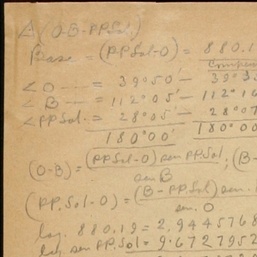 Δ (O-B-PP.Sol.)
Base = (PP.Sol-O) = 880.1
∠ O --- = 39°50' -
∠ B --- = 112°05' - 112°1
∠ PP.Sol = 28°05' - 28°0
180°00' 180°00
(O-B) = (PP.Sol-O) sen PP.Sol ; (B-
sen B
(PP.Sol-O) = (B-PP.Sol) sen.
sen. O
log. 880.19 = 2.9445768
log sen PP.Sol = 9.6727952